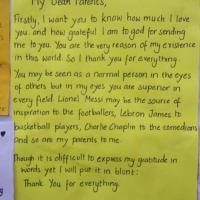 My Dear Parents,
Firstly, I want you to know how much I love
you and how grateful I am to god for sending
me to you. You are the very reason of my existence
in this world. So I thank you for everything.
You may be seen as a normal person in the eyes
of others but in my eyes you are superior in
every field. Lionel Messi may be the source of
inspiration to the footballers, Lebron James to
basketball players, Charlie Chaplin to the comedians
and so are my parents to me.
Though it is difficult to express my gratitude in
words yet I will put it in blunt:
Thank You for everything.